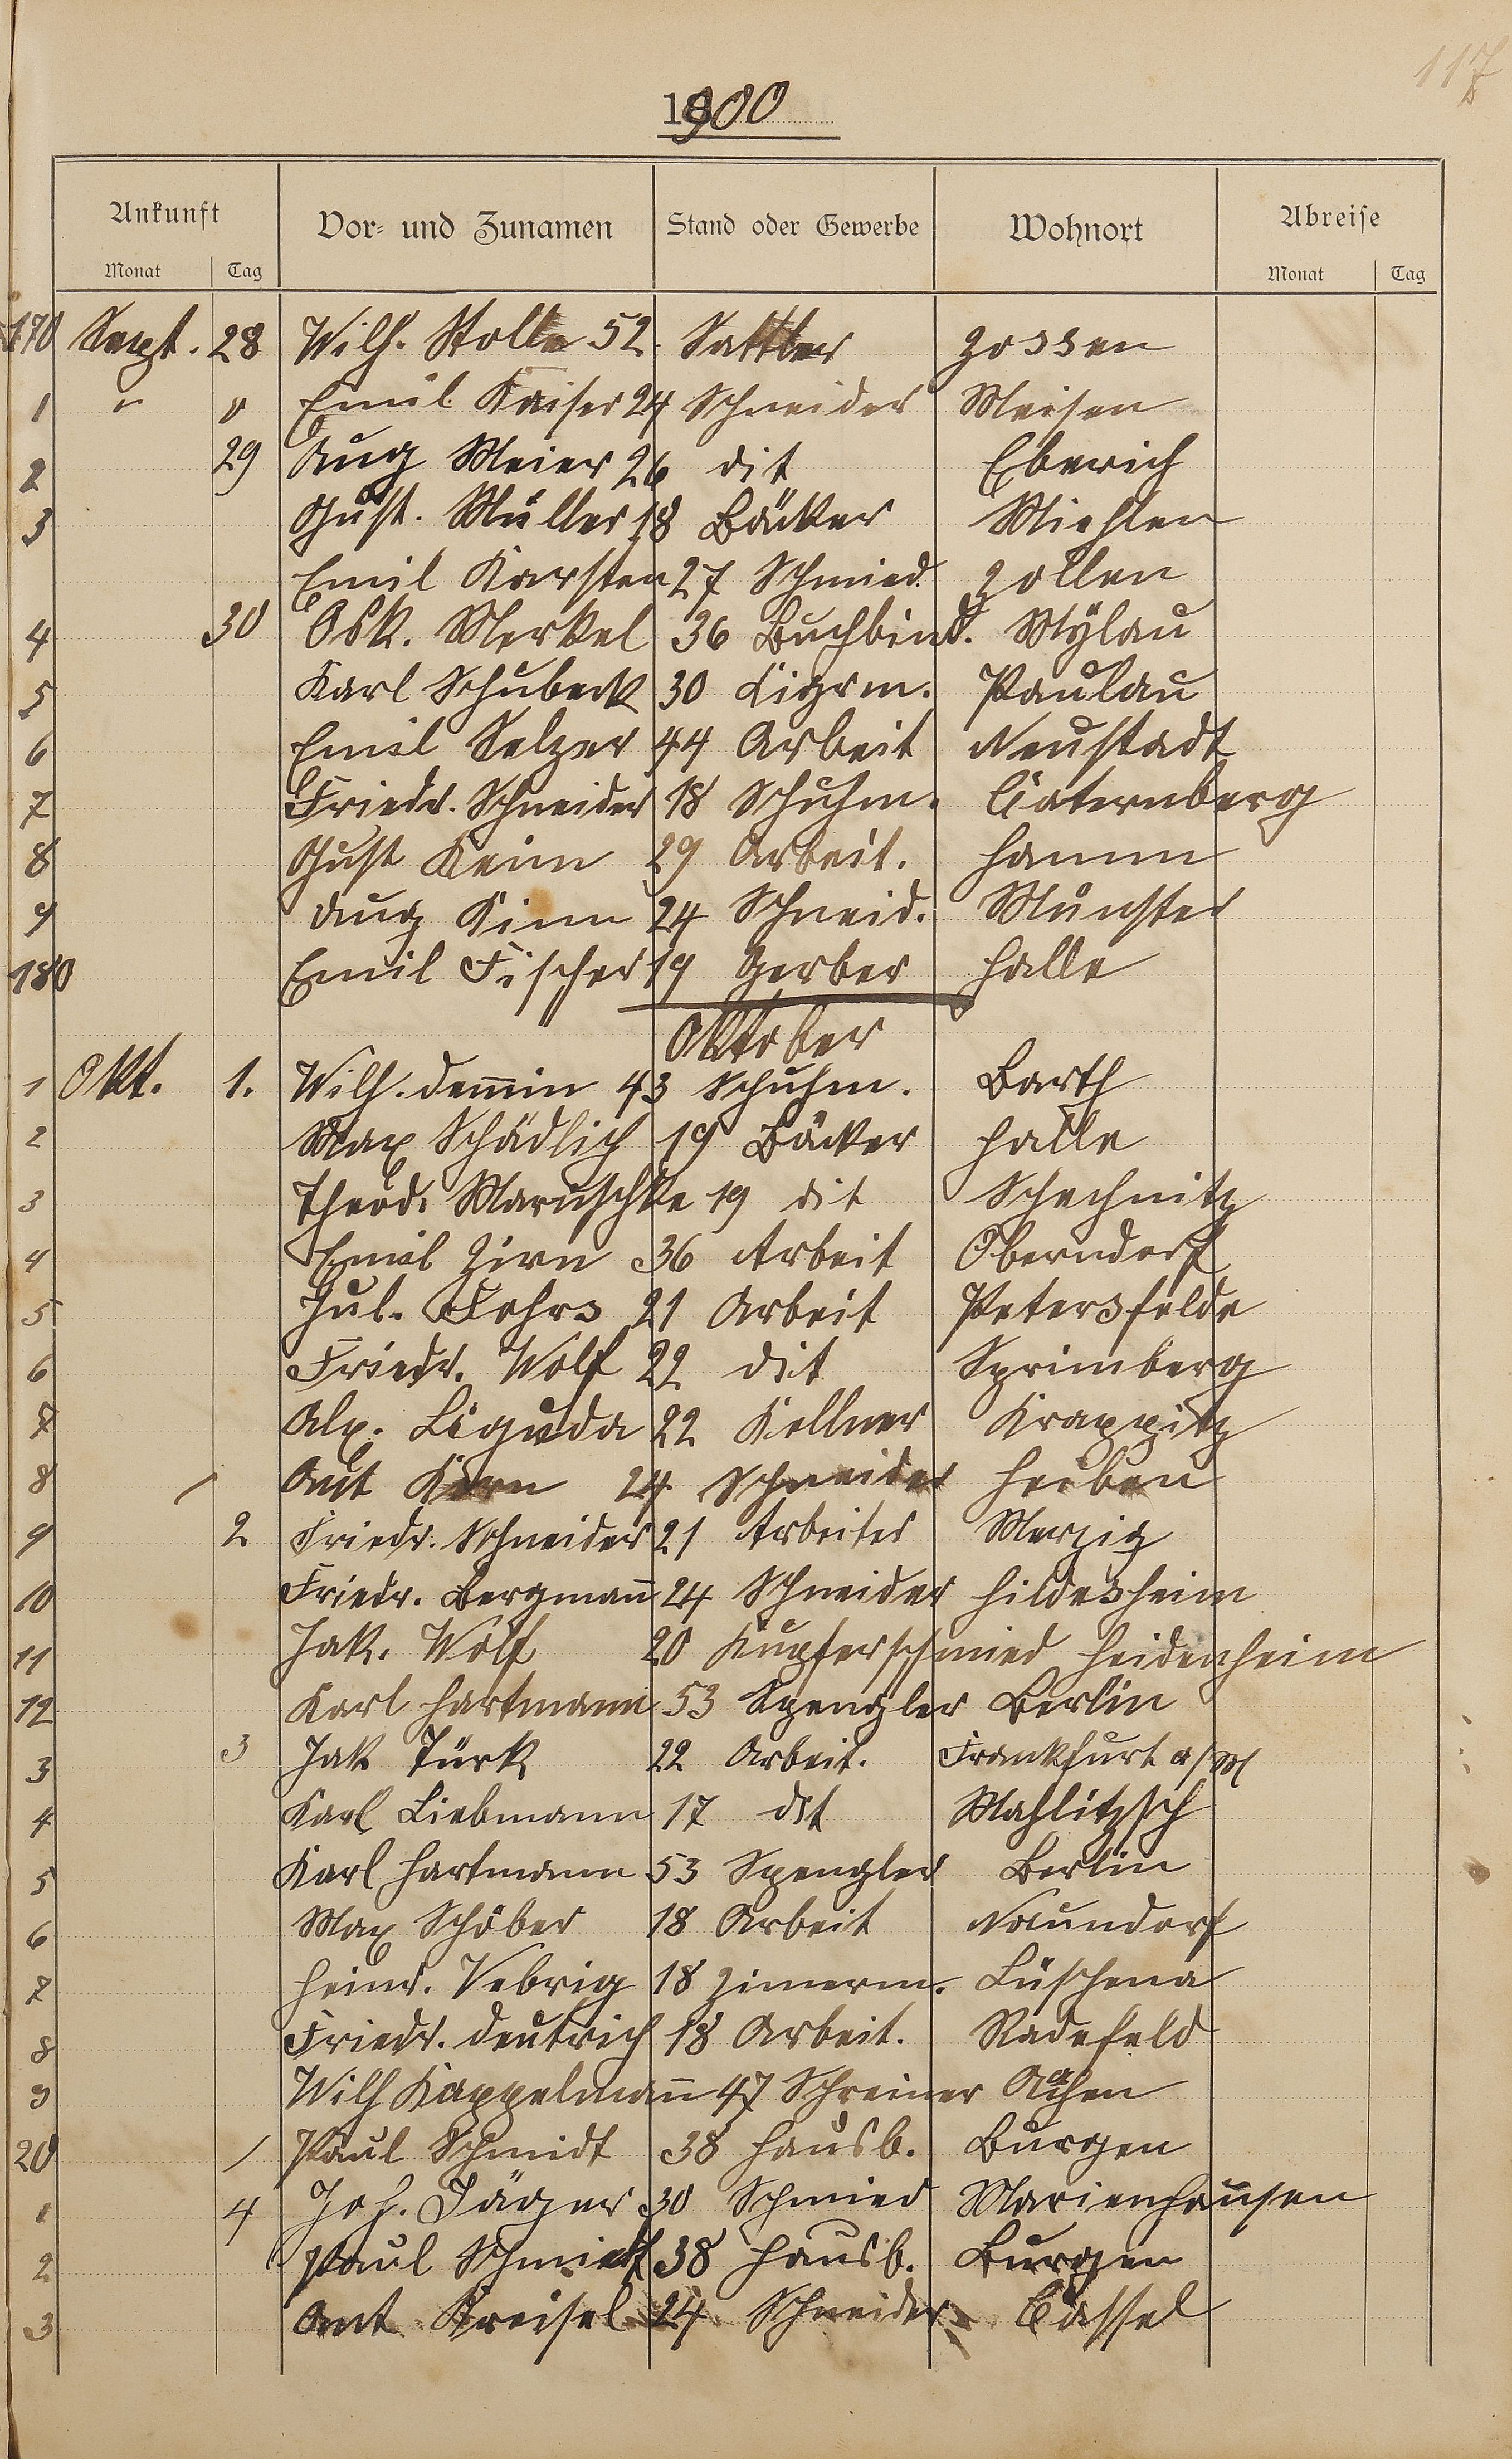 117
1900
Ankunft Vor- und Zunamen Stand oder Gewerbe Wohnort Abreise
Monat Tag Monat Tag
170 Sept. 28 Wilh. Stolle 52. Sattler Zossen
1 " " Emil Kaiser 24 Schneider Meisen
2 29 Aug Meier 26 dit Eberich
3 Gust. Müller 18 Bäcker Miehlen
Emil Karsten 27 Schmied Zollen
4 30 Osk. Merkel 36 Buchbind. Mylau
5 Karl Schubeck 30 Cigrm. Paulau
6 Emil Selzer 44 Arbeit Neustadt
7 Friedr. Schneider 18 Schuhm. Caternberg
8 Gust Keim 29 Arbeit. Hamm
9 Aug Kinn 24 Schneid. Münster
180 Emil Fischer 19 Gerber Halle
Oktober
1 Okt. 1. Wilh. Demin 43 Schuhm. Barth
2 Max Schädlich 19 Bäcker Halle
3 Theod. Maruschke 19 dit Schechnitz
4 Emil Zirn 36 Arbeit Oberndorf
5 Jul. Fohrs 21 Arbeit Petersfelde
6 Friedr. Wolf 22 dit Sprimberg
7 Alex. Liguda 22 Kellner Krappitz
8 Ant Korn 24 Schneider
9 2 Friedr. Schneider 21 Arbeiter Merzig
10 Friedr. Bergmann 24 Schneider Hildesheim
11 Jak. Wolf 20 Kupferschmied Heidenheim
12 Karl Hartmann 53 Spengler Berlin
3 3 Jak Türk 22 Arbeit. Frankfurt a/M
4 Karl Liebmann 17 dit Mahlitzsch
5 Karl Hartmann 53 Spengler Berlin
6 Max Schöber 18 Arbeit Naundorf
7 Heinr. Vebrig 18 Zimerm. Lüschena
8 Friedr. Deutrich 18 Arbeit. Radefeld
9 Wilh Kappelmann 47 Schreiner Aachen
20 Paul Schmidt 38 Hausb. Burgen
1 4 Joh. Jäger 30 Schmied Marienhausen
2 Paul Schmidt 38 Hausb. Burgen
3 Ant Kreisel 24 Schneider Cassel